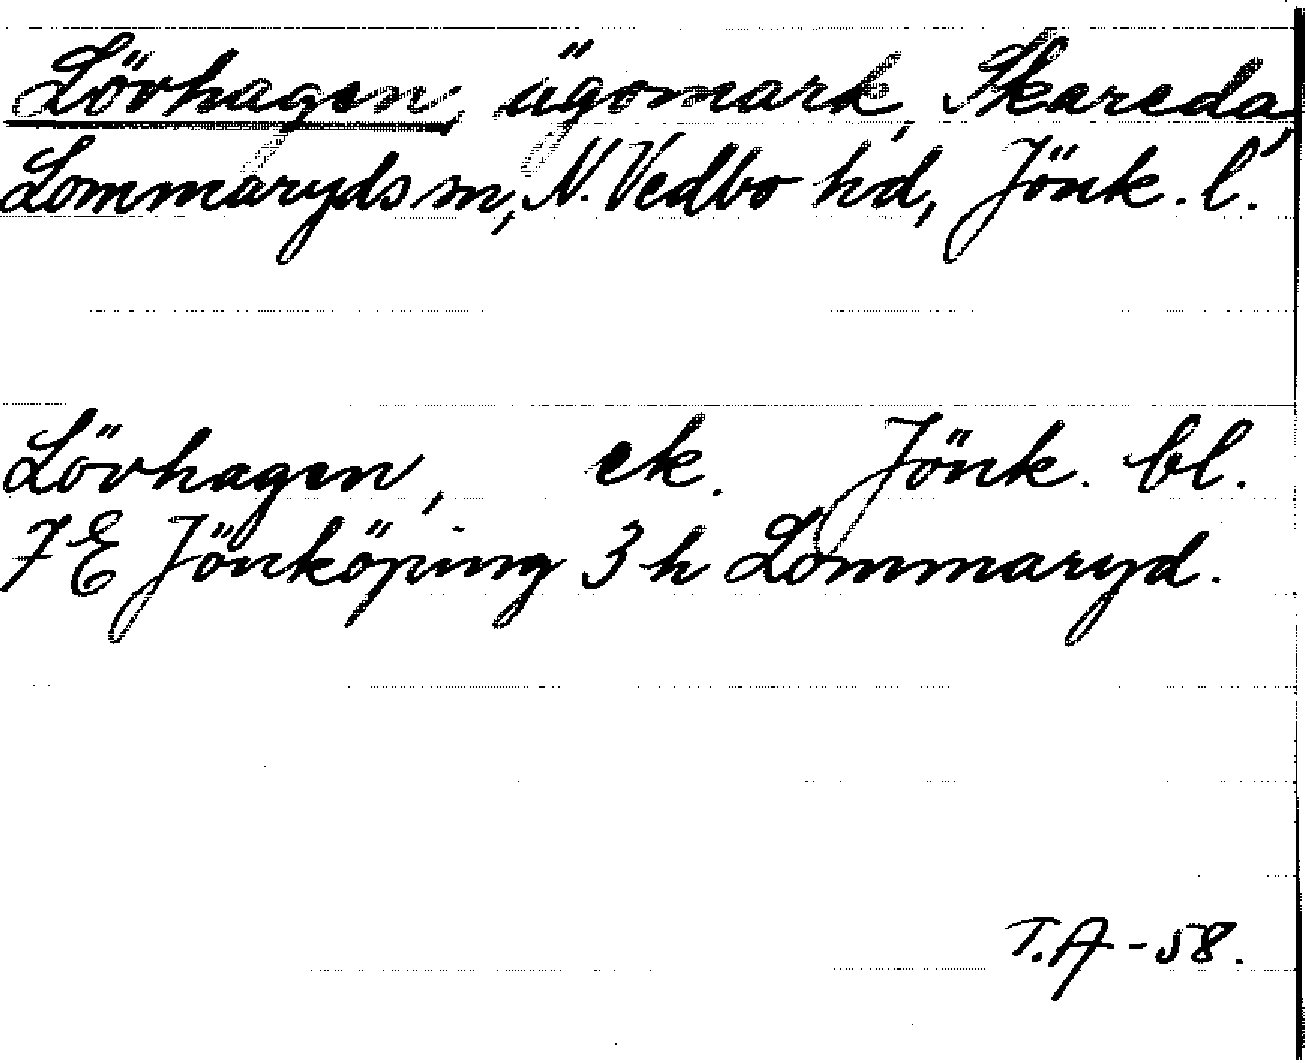 Lövhagen, ägomark, Skareda,
Lommaryds sn, N. Vedbo hd, Jönk. l.
Lövhagen, ek. Jönk. bl.
7E Jönköping 3h Lommaryd.
T.A -58.